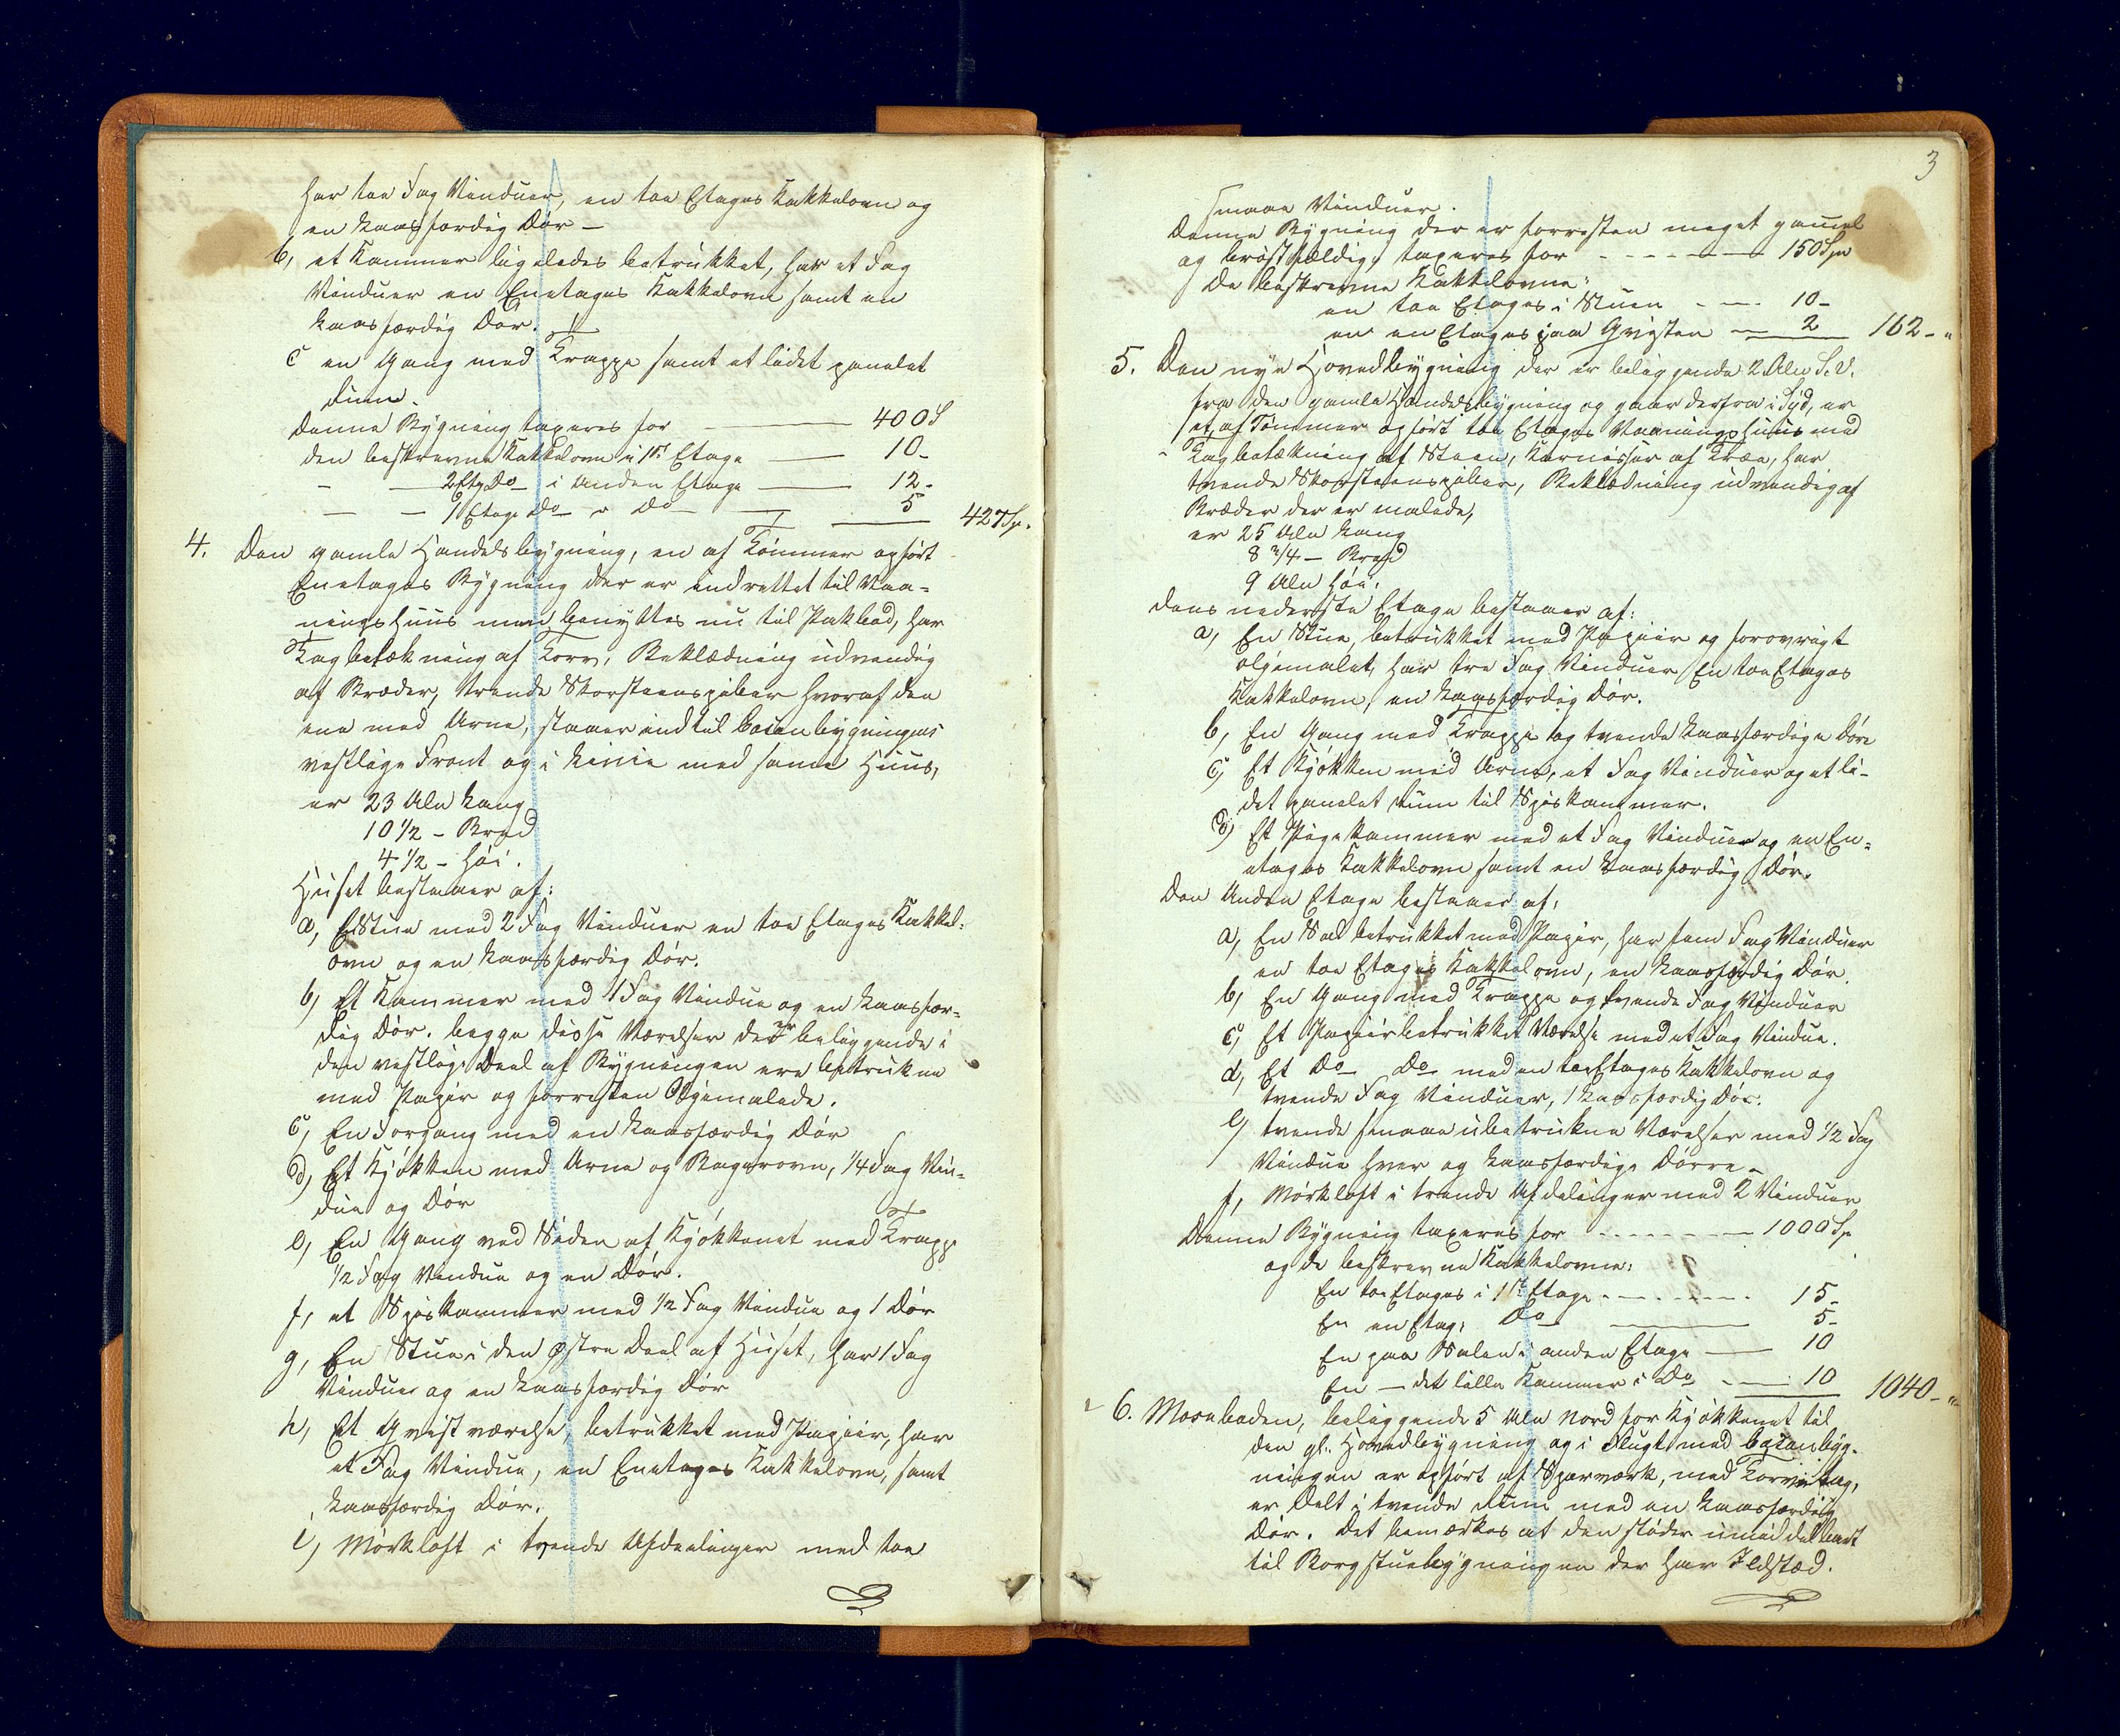 har toe Fag Vinduer, en toe Etages Kakkelovn og
en Laasfærdig Dør –
b, et Kammer ligeledes betrukket, har et Fag
Vinduer en Enetages Kakkelovn samt en
Laasfærdig Dør.
c en Gang med Trappe samt et lidet panelet
Rum.
Denne Bygning taxeres for 400 S
den beskrevne Kakkelovn i 1ste Etage 10 –
– — 2 Etg Do i Anden Etage 12 –
— — 1 Etage Do " Do 5 427 Sp.
4. Den gamle Handelsbygning, en af Tømmer opført
Enetages Bygning der er indrettet til Vaa=
ningshuus men benyttes nu til Pakbod, har
Tagbetækning af Torv, Beklædning udvendig
af Bræder, trende Skorsteenspiber hvoraf den
ene med Arne, staaer indtil bygningens
vestlige Front og i Linie med samme Huus,
er 23 Alen Lang
10 1/2 – Bred
4 1/2 – høi.
Huset bestaaer af:
a, En Stue med 2 Fag Vinduer en toe Etages Kakkel=
ovn og en Laasfærdig Dør.
b, Et Kammer med 1 Fag Vindue og en Laasfær=
dig Dør. begge disse Værelser der er beliggende i
den vestlige Deel af Bygningen ere betrukne
med Papir og forresten Oljemalede.
c, En Forgang med en Laasfærdig Dør
d, Et Kjøkken med Arne og Bagerovn, 1/4 Fag Vin=
due og Dør
e, En Gang ved Siden af Kjøkkenet med Trappe
1/2 Fag Vindue og en Dør.
f, et Spiskammer med 1/2 Fag Vindue og 1 Dør
g, En Stue i den østre Deel af Huset, har 1 Fag
Vinduer og en Laasfærdig Dør
h, Et Qvistværelse, betrukket med Papiir, har
et Fag Vindue, en Enetages Kakkelovn, samt
Laasfærdig Dør.
i, Mørkloft i tvende Afdeelinger med toe
3
smaae Vinduer.
Denne Bygning der er forresten meget gammel
og brøstfældig, taxeres for 150 Sp
De beskrevne Kakkelovne:
en toe Etages i Stuen 10 –
en en Etages paa Qvisten 2 162 – "
5. Den nye Hovedbygning der er beliggende 2 Alen S.V.
fra den gamle Handelsbygning og gaar derfra i Syd, er
et af Tømmer opført toe Etages Vaaningshuus med
Tagbetækning af Steen, Karnisser af Træe, har
tvende Skorsteenspiber, Beklædning udvendig af
Bræder der er malede,
er 25 Alen Lang
8 3/4 – Bred
9 Alen høi.
Dens nederste Etage bestaaer af:
a, En Stue, betrukket med Papiir og forøvrigt
oljemalet, har tre Fag Vinduer En toe Etages
Kakkelovn, en Laasfærdig Dør.
b, En Gang med Trappe og tvende Laasfærdige Døre
c, Et Kjøkken med Arne, et Fag Vinduer og et li=
det panelet Rum til Spiskammer.
d, Et Pigekammer med et Fag Vinduer og en En=
etages Kakkelovn samt en Laasfærdig Dør.
Den Anden Etage bestaaer af:
a, En Sal betrukket med Papir, har fem Fag Vinduer
en toe Etages Kakkelovn, en Laasfærdig Dør.
b, En Gang med Trappe og tvende Fag Vinduer
c, Et Papiirbetrukket Værelse med et Fag Vindue.
d, Et Do Do med en toe Etages Kakkelovn og
tvende Fag Vinduer, 1 Laasfærdig Dør.
e, tvende smaae ubetrukne Værelser med 1/2 Fag
Vindue hver og Laasfærdige Dørre –
f, Mørkloft i trende Afdelinger med 2 Vinduer
Denne Bygning taxeres for 1000 Sp
og de beskrevne Kakkelovne:
En toe Etages i 1ste Etage 15 –
En en Etag: Do 5 –
En paa Salen i anden Etage 10
En — det lille Kammer i Do 10 1040 – "
6. Moseboden, beliggende 5 Alen Nord for Kjøkkenet til
den gl. Hovedbygning og i Flugt med byg=
ningen er opført af Sparværk, med Torvetag,
er Delt i tvende Rum med en Laasfærdig
Dør. Det bemærkes at den støder umiddelbart
til Borgstuebygningen der har Ildsted.